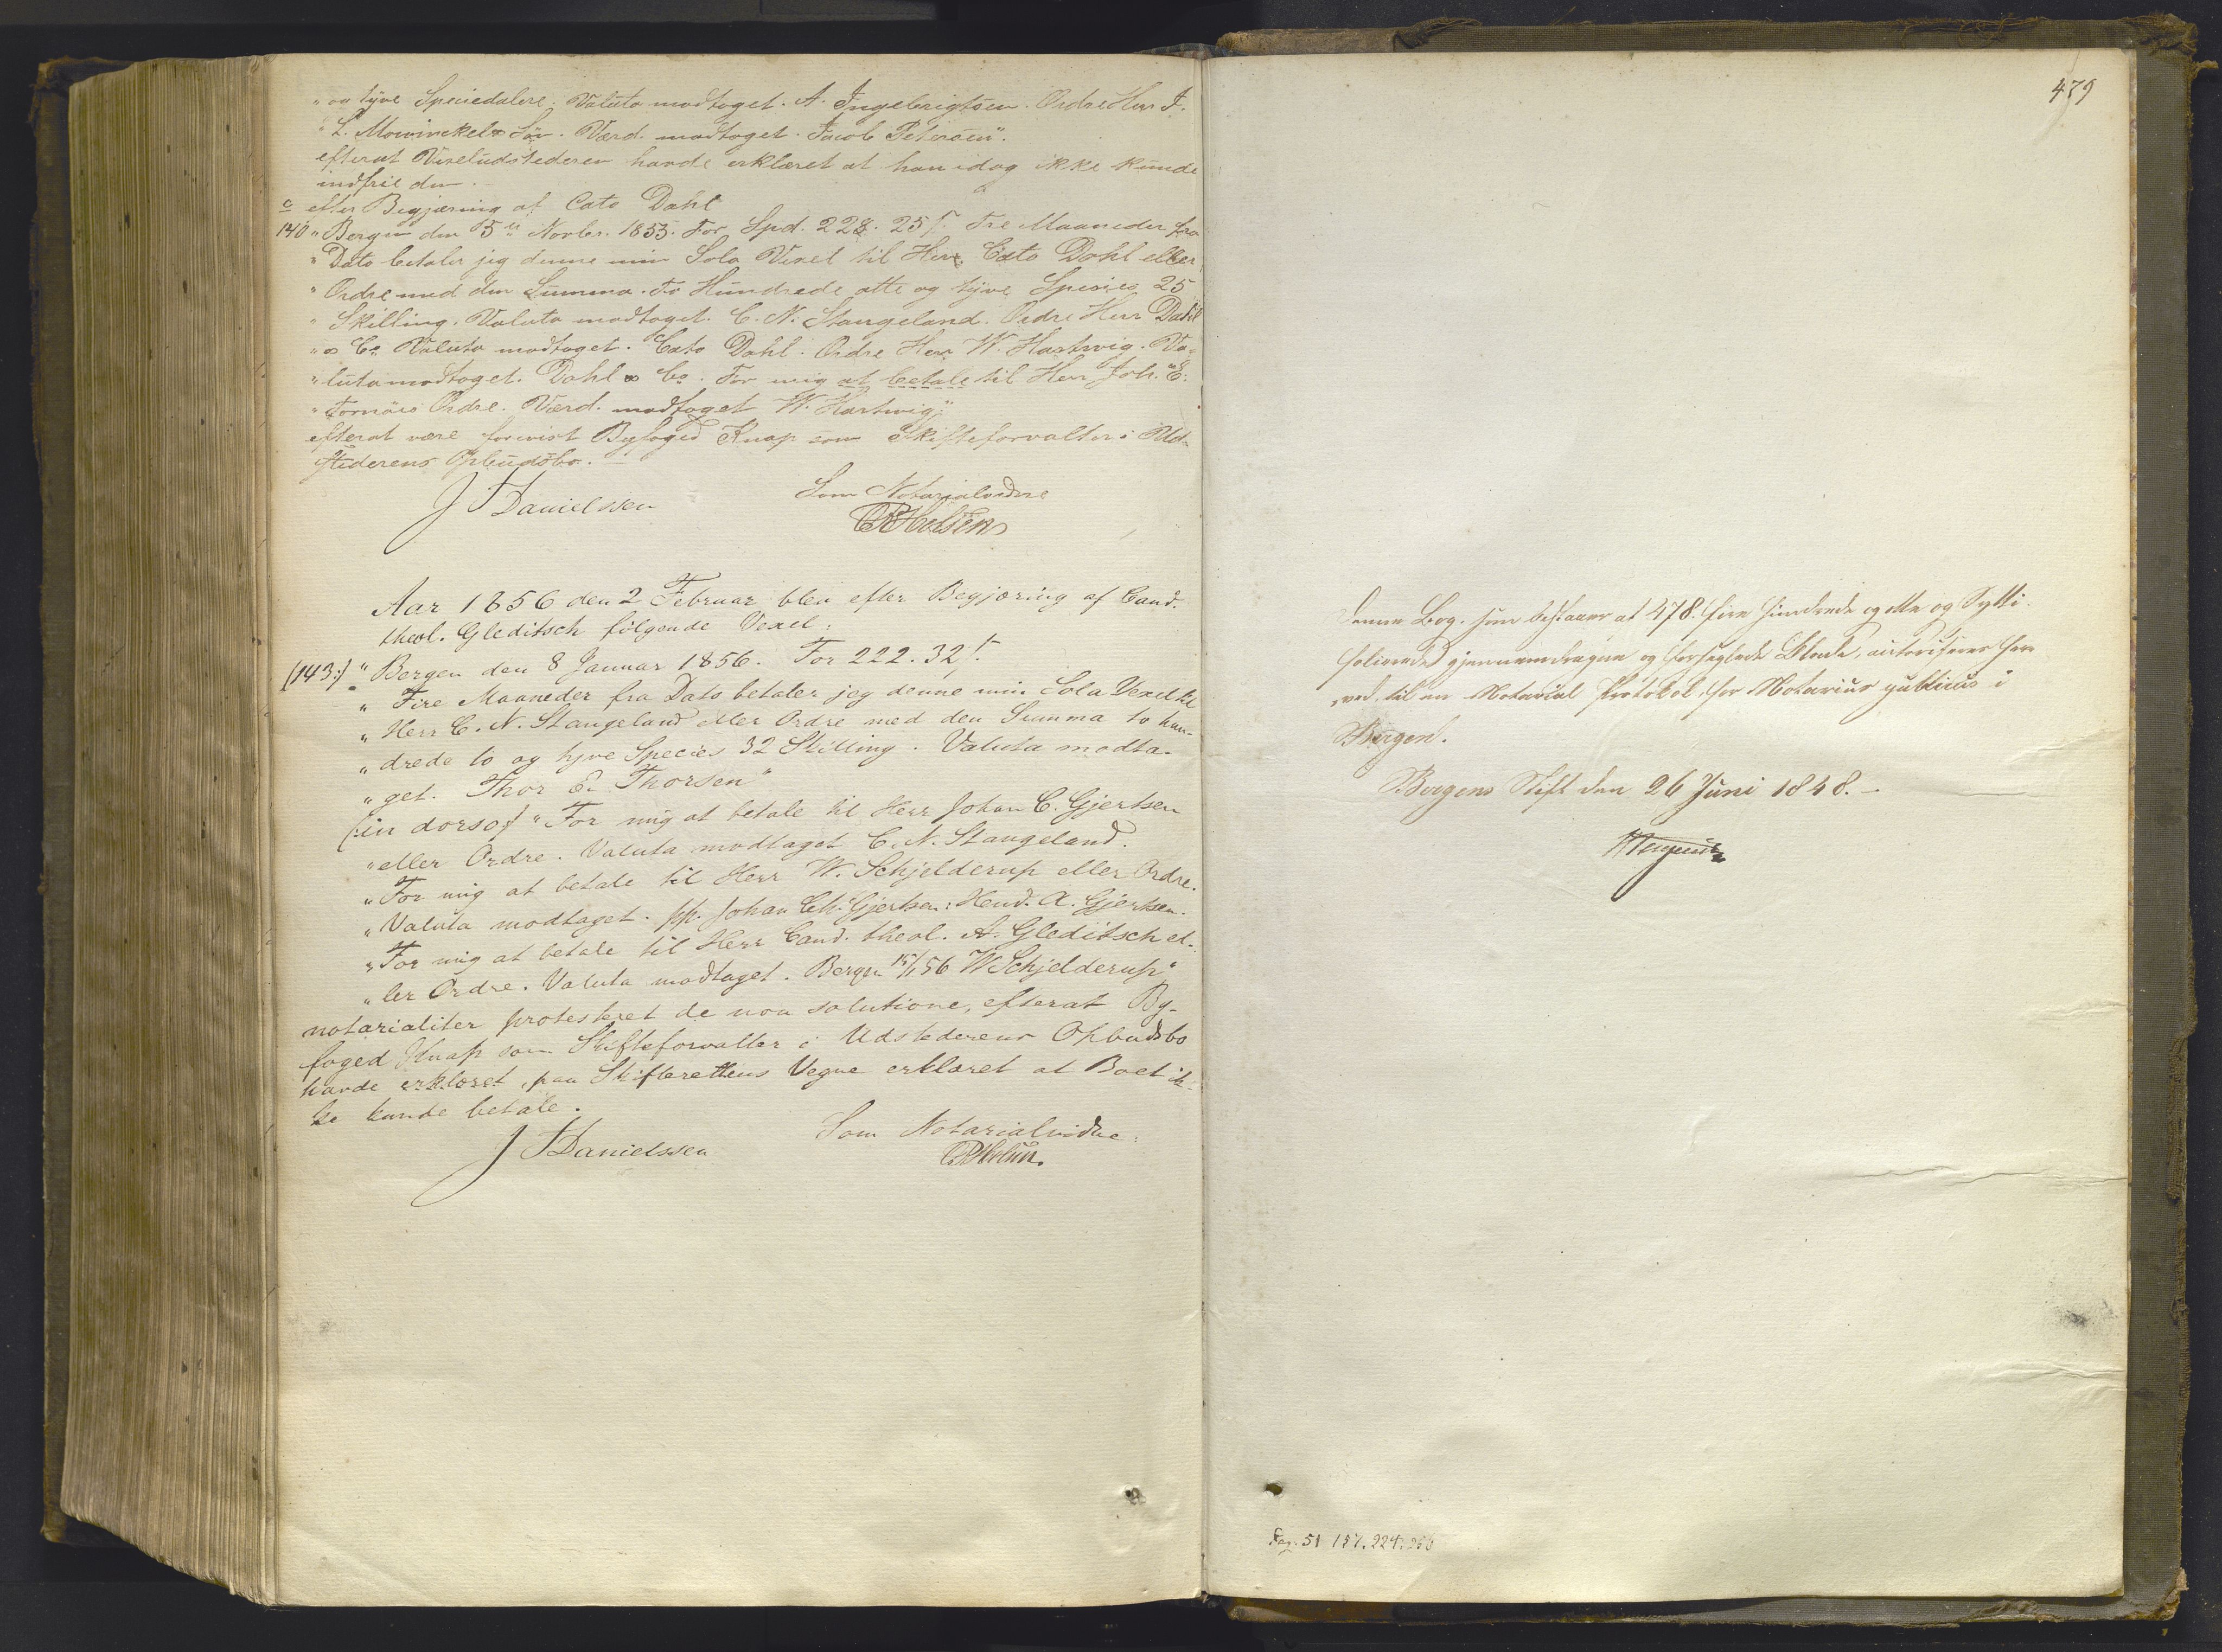 "og tyve Speciedalere. Valuta modtaget. A. Ingebrigtsen. Ordre Herr J.
"L. Mowinckel & Søn. Værd. modtaget. Jacob Petersen".
efterat Vexeludstederen havde erklæret at han idag ikke kunde
indfrie den.
c efter Begjæring af Cato Dahl
140 "Bergen den 5te Novbr. 1855. For Spd. 228. 25 s. Tre Maaneder fra
"Dato betaler jeg denne min Sola Vexel til Herr Cato Dahl eller
"Ordre med den Summa. To Hundrede otte og tyve Species 25
"Skilling. Valuta modtaget. C. N. Stangeland. Ordre Herr Dahl
"& Co. Valuta modtaget. Cato Dahl. Ordre Herr W. Hartwig. Va-
"luta modtaget. Dahl & Co. For mig at betale til Herr Joh. E.
"Ordre. Værd. modtaget W. Hartwig"
efterat være forevist Byfoged Knap som Skifteforvalter i Ud-
stederens Opbudsbo.
J Danielssen
Som Notarialvidne
Aar 1856 den 2 Februar blev efter Begjæring af Cand.
theol. Gleditsch følgende Vexel:
(143:) "Bergen den 8 Januar 1856. For 222. 32 s.
"Fire Maaneder fra Dato betaler jeg denne min Sola Vexel til
"Herr C. N. Stangeland eller Ordre med den Summa to hun-
"drede to og tyve Species 32 Skilling. Valuta modta-
"get. Thor E. Thorsen"
(in dorso) "For mig at betale til Herr Johan C. Gjertsen
"eller Ordre. Valuta modtaget C. N. Stangeland.
"For mig at betale til Herr W. Schjelderup eller Ordre.
"Valuta modtaget. pp. Johan Chr. Gjertsen: Hend. A. Gjertsen.
"For mig at betale til Herr Cand. theol. A. Gleditsch el-
"ler Ordre. Valuta modtaget. Bergen 15/1 56 W Schjelderup"
notarialiter protesteret de non solutione, efterat By-
foged Knap som Skifteforvalter i Udstederens Opbudsbo
havde erklæret, paa Skifterettens Vegne erklæret at Boet ik-
ke kunde betale.
J Danielssen
Som Notarialvidne:
479
Denne Bog, som bestaaer af 478 fire hundrede og otte og Sytti
folierede gjennemdragne og forseglede Blade, autoriseres her-
ved til en Notarial Protokol for Notarius publicus i
Bergen.
Bergens Stift den 26 Juni 1848.
Pag. 51 157. 224.